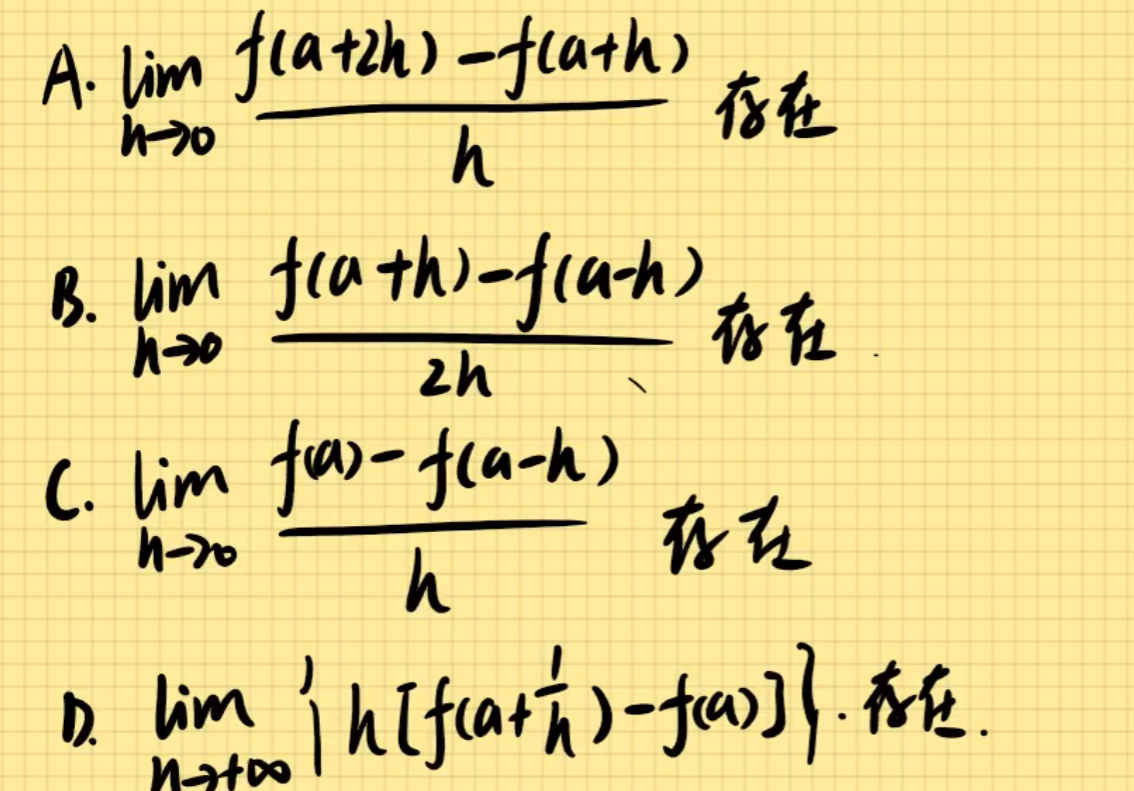 A. lim h→0 f(a+2h)-f(a+h) / h 存在
B. lim h→0 f(a+h)-f(a-h) / 2h 存在.
C. lim h→0 f(a)-f(a-h) / h 存在
D. lim h→+∞ { h[f(a+1/h)-f(a)]}. 存在.